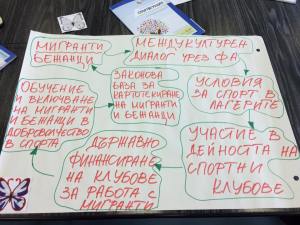 МИГРАНТИ
БЕЖАНЦИ
МЕЖДУКУЛТУРЕН
ДИАЛОГ ЧРЕЗ ФА
ЗАКОНОВА
БАЗА ЗА
КАРТОТЕКИРАНЕ
НА МИГРАНТИ
И БЕЖАНЦИ
УСЛОВИЯ
ЗА СПОРТ В
ЛАГЕРИТЕ
ОБУЧЕНИЕ
И ВКЛЮЧВАНЕ
НА МИГРАНТИ
И БЕЖАНЦИ В
ДОБРОВОЛЧЕСТВО
В СПОРТА
ДЪРЖАВНО
ФИНАНСИРАНЕ
НА КЛУБОВЕ
ЗА РАБОТА С
МИГРАНТИ
УЧАСТИЕ В
ДЕЙНОСТТА НА
СПОРТНИ
КЛУБОВЕ